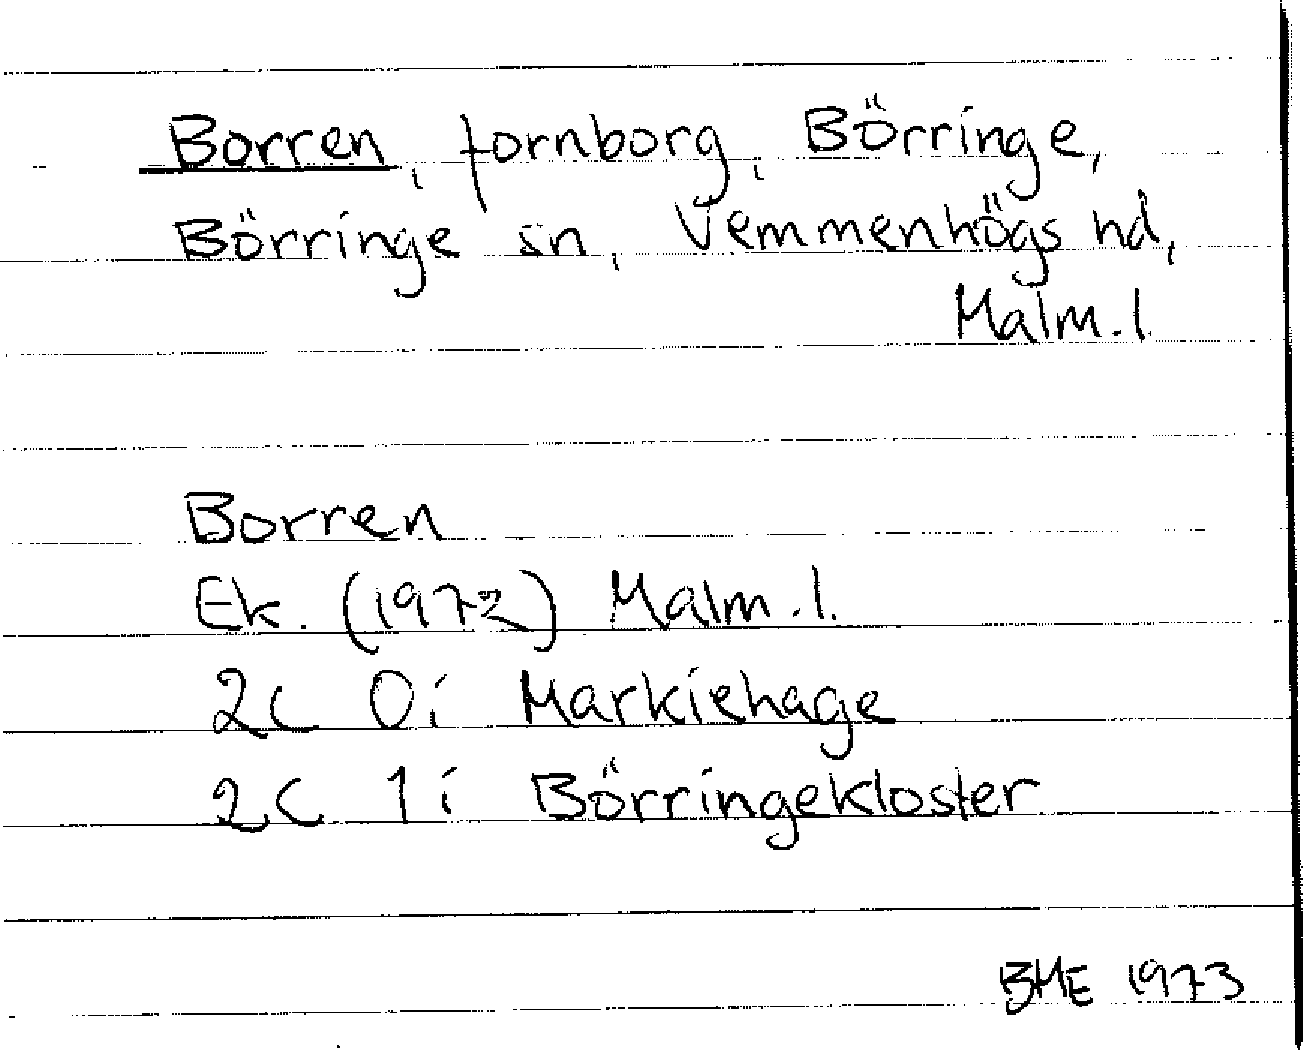 Borren, fornborg, Börringe,
Börringe sn, Vemmenhögs hd,
Malm. l.
Borren
Ek. (1972) Malm. l.
2C 0i Markiehage
2C 1i Börringekloster
BME 1973